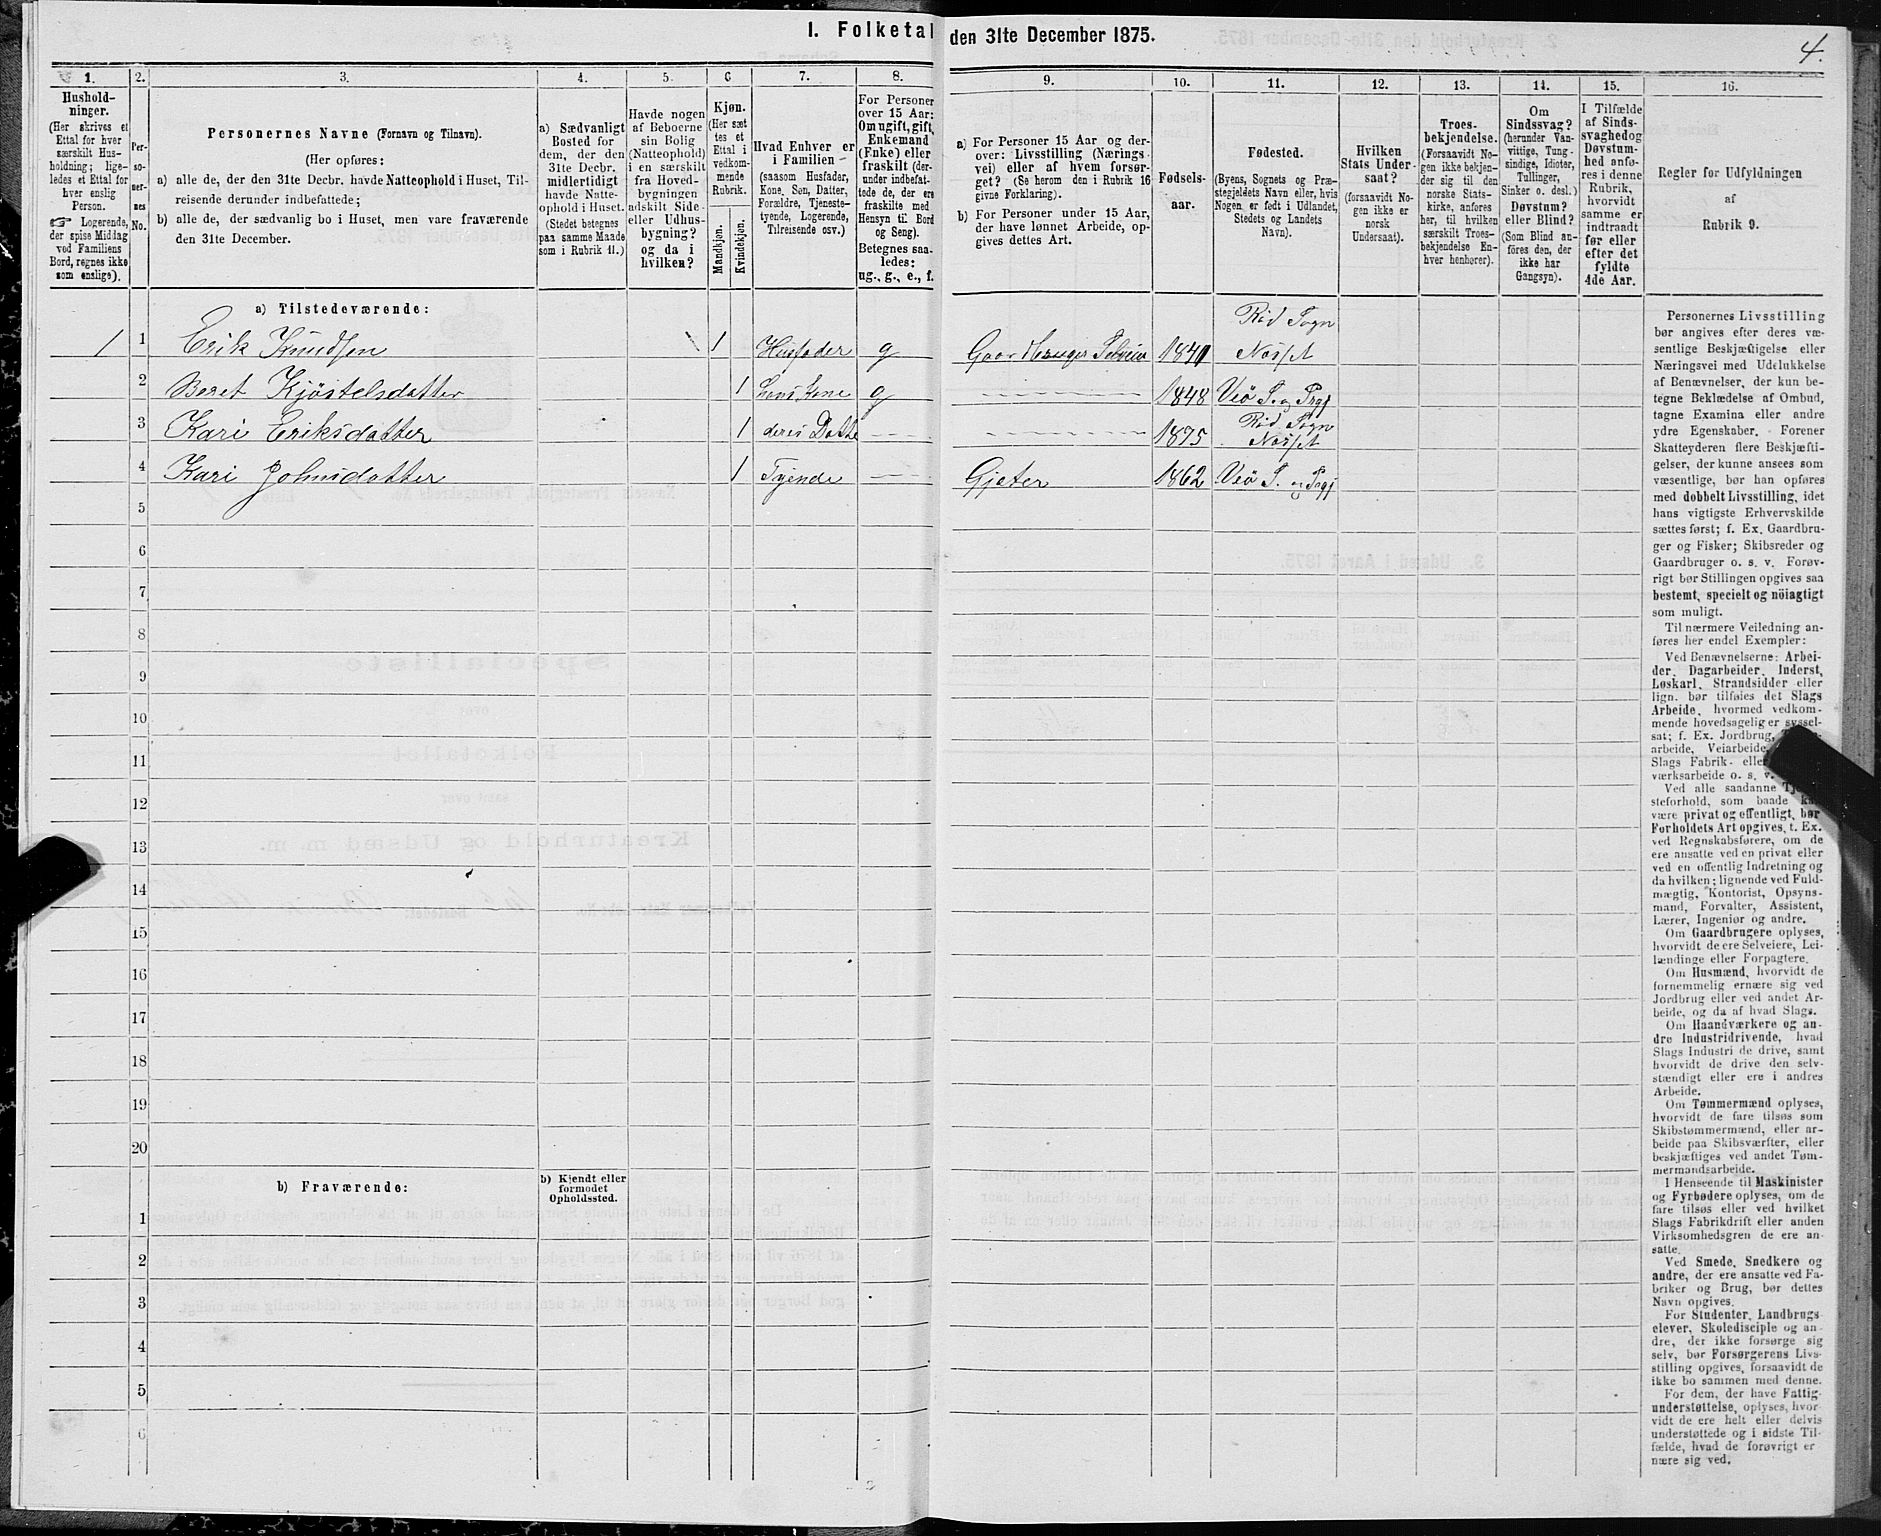 I. Folketal den 31te December 1875.
4.
1.
Hushold-
ninger.
(Her skrives et
Ettal for hver
særskilt Hus-
holdning; lige-
ledes et Ettal for
hver enslig
Person.
☞ Logerende,
der spise Middag
ved Familiens
Bord, regnes ikke
som enslige).
2.
Per-
so-
ner-
nes
No.
3.
Personernes Navne (Fornavn og Tilnavn).
(Her opføres:
a) alle de, der den 31te Decbr. havde Natteophold i Huset, Til-
reisende derunder indbefattede;
b) alle de, der sædvanlig bo i Huset, men vare fraværende
den 31te December.
4.
a) Sædvanligt
Bosted for
dem, der den
31te Decbr.
midlertidigt
havde Natte-
ophold i Huset.
(Stedet betegnes
paa samme Maade
som i Rubrik 11.)
5.
Havde nogen
af Beboerne
sin Bolig
(Natteophold)
i en særskilt
fra Hoved-
bygningen
adskilt Side-
eller Udhus-
bygning?
og da i
hvilken?
6
Kjøn.
(Her sæt
tes et
Ettal i
vedkom-
mende
Rubrik.
Mandkjøn.
Kvindekjøn.
7.
Hvad Enhver er
i Familien
(saasom Husfader,
Kone, Søn, Datter,
Forældre, Tjeneste-
tyende, Logerende,
Tilreisende osv.)
8.
For Personer
over 15 Aar:
Om ugift, gift,
Enkemand
(Enke) eller
fraskilt (der-
under indbefat-
tede de, der ere
fraskilte med
Hensyn til Bord
og Seng).
Betegnes saa-
ledes:
ug., g., e., f.
9.
a) For Personer 15 Aar og der-
over: Livsstilling (Nærings-
vei) eller af hvem forsør-
get? (Se herom den i Rubrik 16
givne Forklaring).
b) For Personer under 15 Aar,
der have lønnet Arbeide, op-
gives dettes Art.
10.
Fødsels-
aar.
11.
Fødested.
(Byens, Sognets og Præ-
stegjeldets Navn eller, hvis
Nogen er født i Udlandet,
Stedets og Landets
Navn).
12.
Hvilken
Stats Under-
saat?
(forsaavidt No-
gen ikke er
norsk
Undersaat).
13.
Troes-
bekjendelse.
(Forsaavidt No-
gen ikke bekjen-
der sig til den
norske Stats-
kirke, anføres
her, til hvilken
særskilt Troes-
bekjendelse En-
hver henhører).
14.
Om
Sindssvag?
(herunder Van-
vittige, Tung-
sindige, Idioter,
Tullinger,
Sinker o. desl.)
Døvstum?
eller Blind?
(Som Blind an-
føres den, der
ikke har
Gangsyn).
15.
I Tilfælde
af Sinds-
svaghed og
Døvstum-
hed anfø-
res i denne
Rubrik,
hvorvidt
samme er
indtraadt
før eller
efter det
fyldte
4de Aar.
16.
Regler for Udfyldningen
af
Rubrik 9.
a) Tilstedeværende:
1 1 Erik Knudsen 1 Husfader g Gaardbruger Selveier 1841 Röd Sogn
Nösset
2 Beret Kjöstelsdatter 1 hans Kone g 1848 Veö S. og Prgj
3 Kari Eriksdatter 1 deres Datter 1875 Röd Sogn
Nösset
4 Kari Johnsdatter 1 Tyende Gjeter 1862 Veö S. og Prgj
5
6
7
8
9
10
11
12
13
14
15
16
17
18
19
20
b) Fraværende:
b) Kjendt eller
formodet
Opholdssted.
1
2
3
4
5
6
Personernes Livsstilling
bør angives efter deres væ-
sentlige Beskjæftigelse eller
Næringsvei med Udelukkelse
af Benævnelser, der kun be-
tegne Beklædelse af Ombud,
tagne Examina eller andre
ydre Egenskaber. Forener
Skatteyderen flere Beskjæfti-
gelser, der kunne ansees som
væsentlige, bør han opføres
med dobbelt Livsstilling, idet
hans vigtigste Erhvervskilde
sættes først; f. Ex. Gaardbru-
ger og Fisker; Skibsreder og
Gaardbruger o. s. v. Forøv-
rigt bør Stillingen opgives saa
bestemt, specielt og nöiagtigt
som muligt.
Til nærmere Veiledning an-
føres her endel Exempler:
Ved Benævnelserne: Arbei-
der, Dagarbeider, Inderst,
Løskarl, Strandsidder eller
lign. bør tilføies det Slags
Arbeide, hvormed vedkom-
mende hovedsagelig er syssel-
sat; f. Ex. Jordbrug,
arbeide, Veiarbeide,
Slags Fabrik- eller
værksarbeide o. s. v.
Ved alle saadanne
steforhold, som baade kan
være privat og offentligt, bør
Forholdets Art opgives, t. Ex.
ved Regnskabsførere, om de
ere ansatte ved en privat eller
ved en offentlig Indretning og
da hvilken; lignende ved Fuld-
mægtig, Kontorist, Opsyns-
mand, Forvalter, Assistent,
Lærer, Ingeniør og andre.
Om Gaardbrugere oplyses,
hvorvidt de ere Selveiere, Lei-
lændinge eller Forpagtere.
Om Husmænd, hvorvidt de
fornemmelig ernære sig ved
Jordbrug eller ved andet Ar-
beide, og da af hvad Slags.
Om Haandværkere og an-
dre Industridrivende, hvad
Slags Industri de drive, samt
hvorvidt de drive den selv-
stændigt eller ere i andres
Arbeide.
Om Tømmermænd oplyses,
hvorvidt de fare tilsøs som
Skibstømmermænd, eller ar-
beide paa Skibsværfter, eller
beskjæftiges ved andet Tøm-
mermandsarbeide.
I Henseende til Maskinister
og Fyrbødere oplyses, om de
fare tilsøs eller ved hvilket
Slags Fabrikdrift eller anden
Virksomhedsgren de ere an-
satte.
Ved Smede, Snedkere og
andre, der ere ansatte ved Fa-
briker og Brug, bør dettes
Navn opgives.
For Studenter, Landbrugs-
elever, Skoledisciple og an-
dre, der ikke forsørge sig
selv, bør Forsørgerens Livs-
stilling opgives, forsaavidt de
ikke bo sammen med denne.
For dem, der have Fattig-
understøttelse, oplyses, hvor-
vidt de ere helt eller delvis
understøttede og i sidste Til-
fælde, hvad de forøvrigt er
nære sig ved.